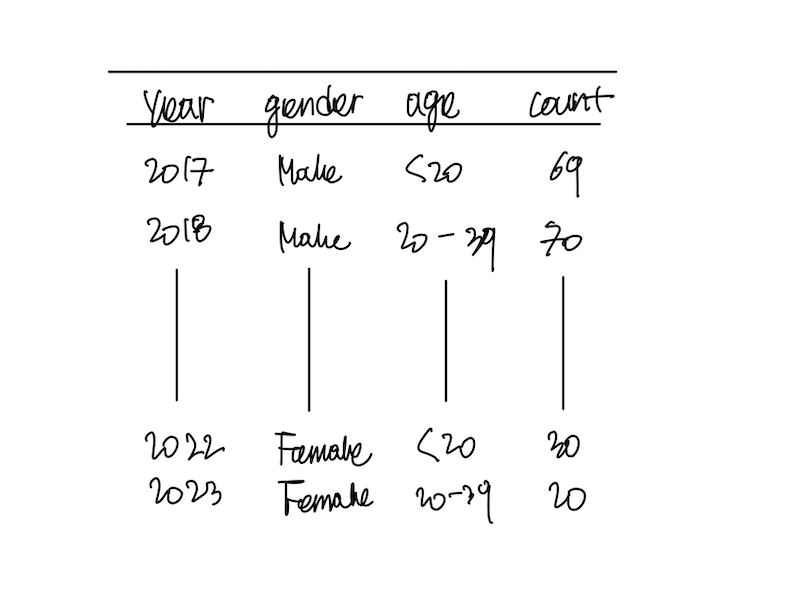 year gender age count
2017 Male <20 69
2018 Male 20-39 70
2022 Female <20 30
2023 Female 20-39 20